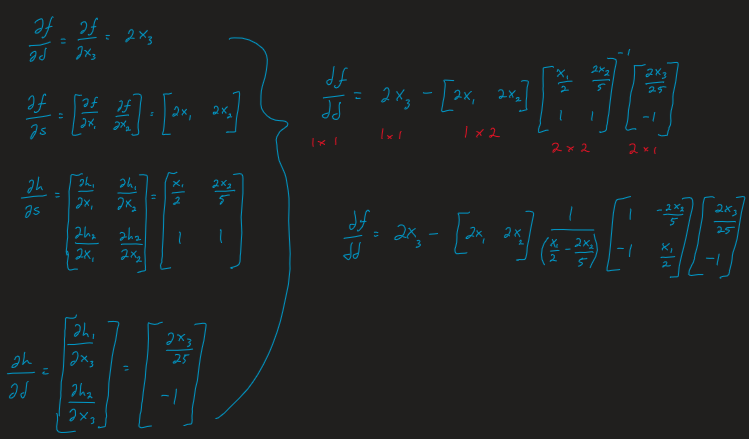 ∂f/∂d = ∂f/∂x₃ = 2x₃
∂f/∂s = [∂f/∂x₁ ∂f/∂x₂] = [2x₁ 2x₂]
∂h/∂s = [∂h₁/∂x₁ ∂h₁/∂x₂; ∂h₂/∂x₁ ∂h₂/∂x₂] = [x₁/2 2x₂/5; 1 1]
∂h/∂d = [∂h₁/∂x₃; ∂h₂/∂x₃] = [2x₃/25; -1]
df/dd = 2x₃ - [2x₁ 2x₂] [x₁/2 2x₂/5; 1 1]⁻¹ [2x₃/25; -1]
1x1 1x1 1x2 2x2 2x1
df/dd = 2x₃ - [2x₁ 2x₂] 1/(x₁/2 - 2x₂/5) [1 -2x₂/5; -1 x₁/2] [2x₃/25; -1]